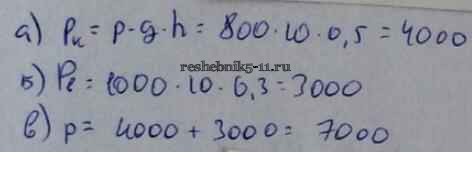 а) Pк = p·g·h = 800·10·0,5 = 4000
reshebnik5-11.ru
б) P2 = 1000·10·0,3 = 3000
в) p = 4000 + 3000 = 7000